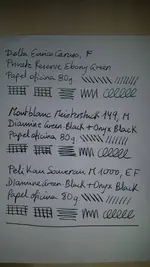 Delta Enrico Caruso, F
Private Reserve Ebony Green
Papel oficina 80g
Montblanc Meisterstück 149, M
Diamine Green-Black + Onyx Black
Papel oficina 80g
Pelikan Souverän M1000, EF
Diamine Green Black + Onyx Black
Papel oficina 80g